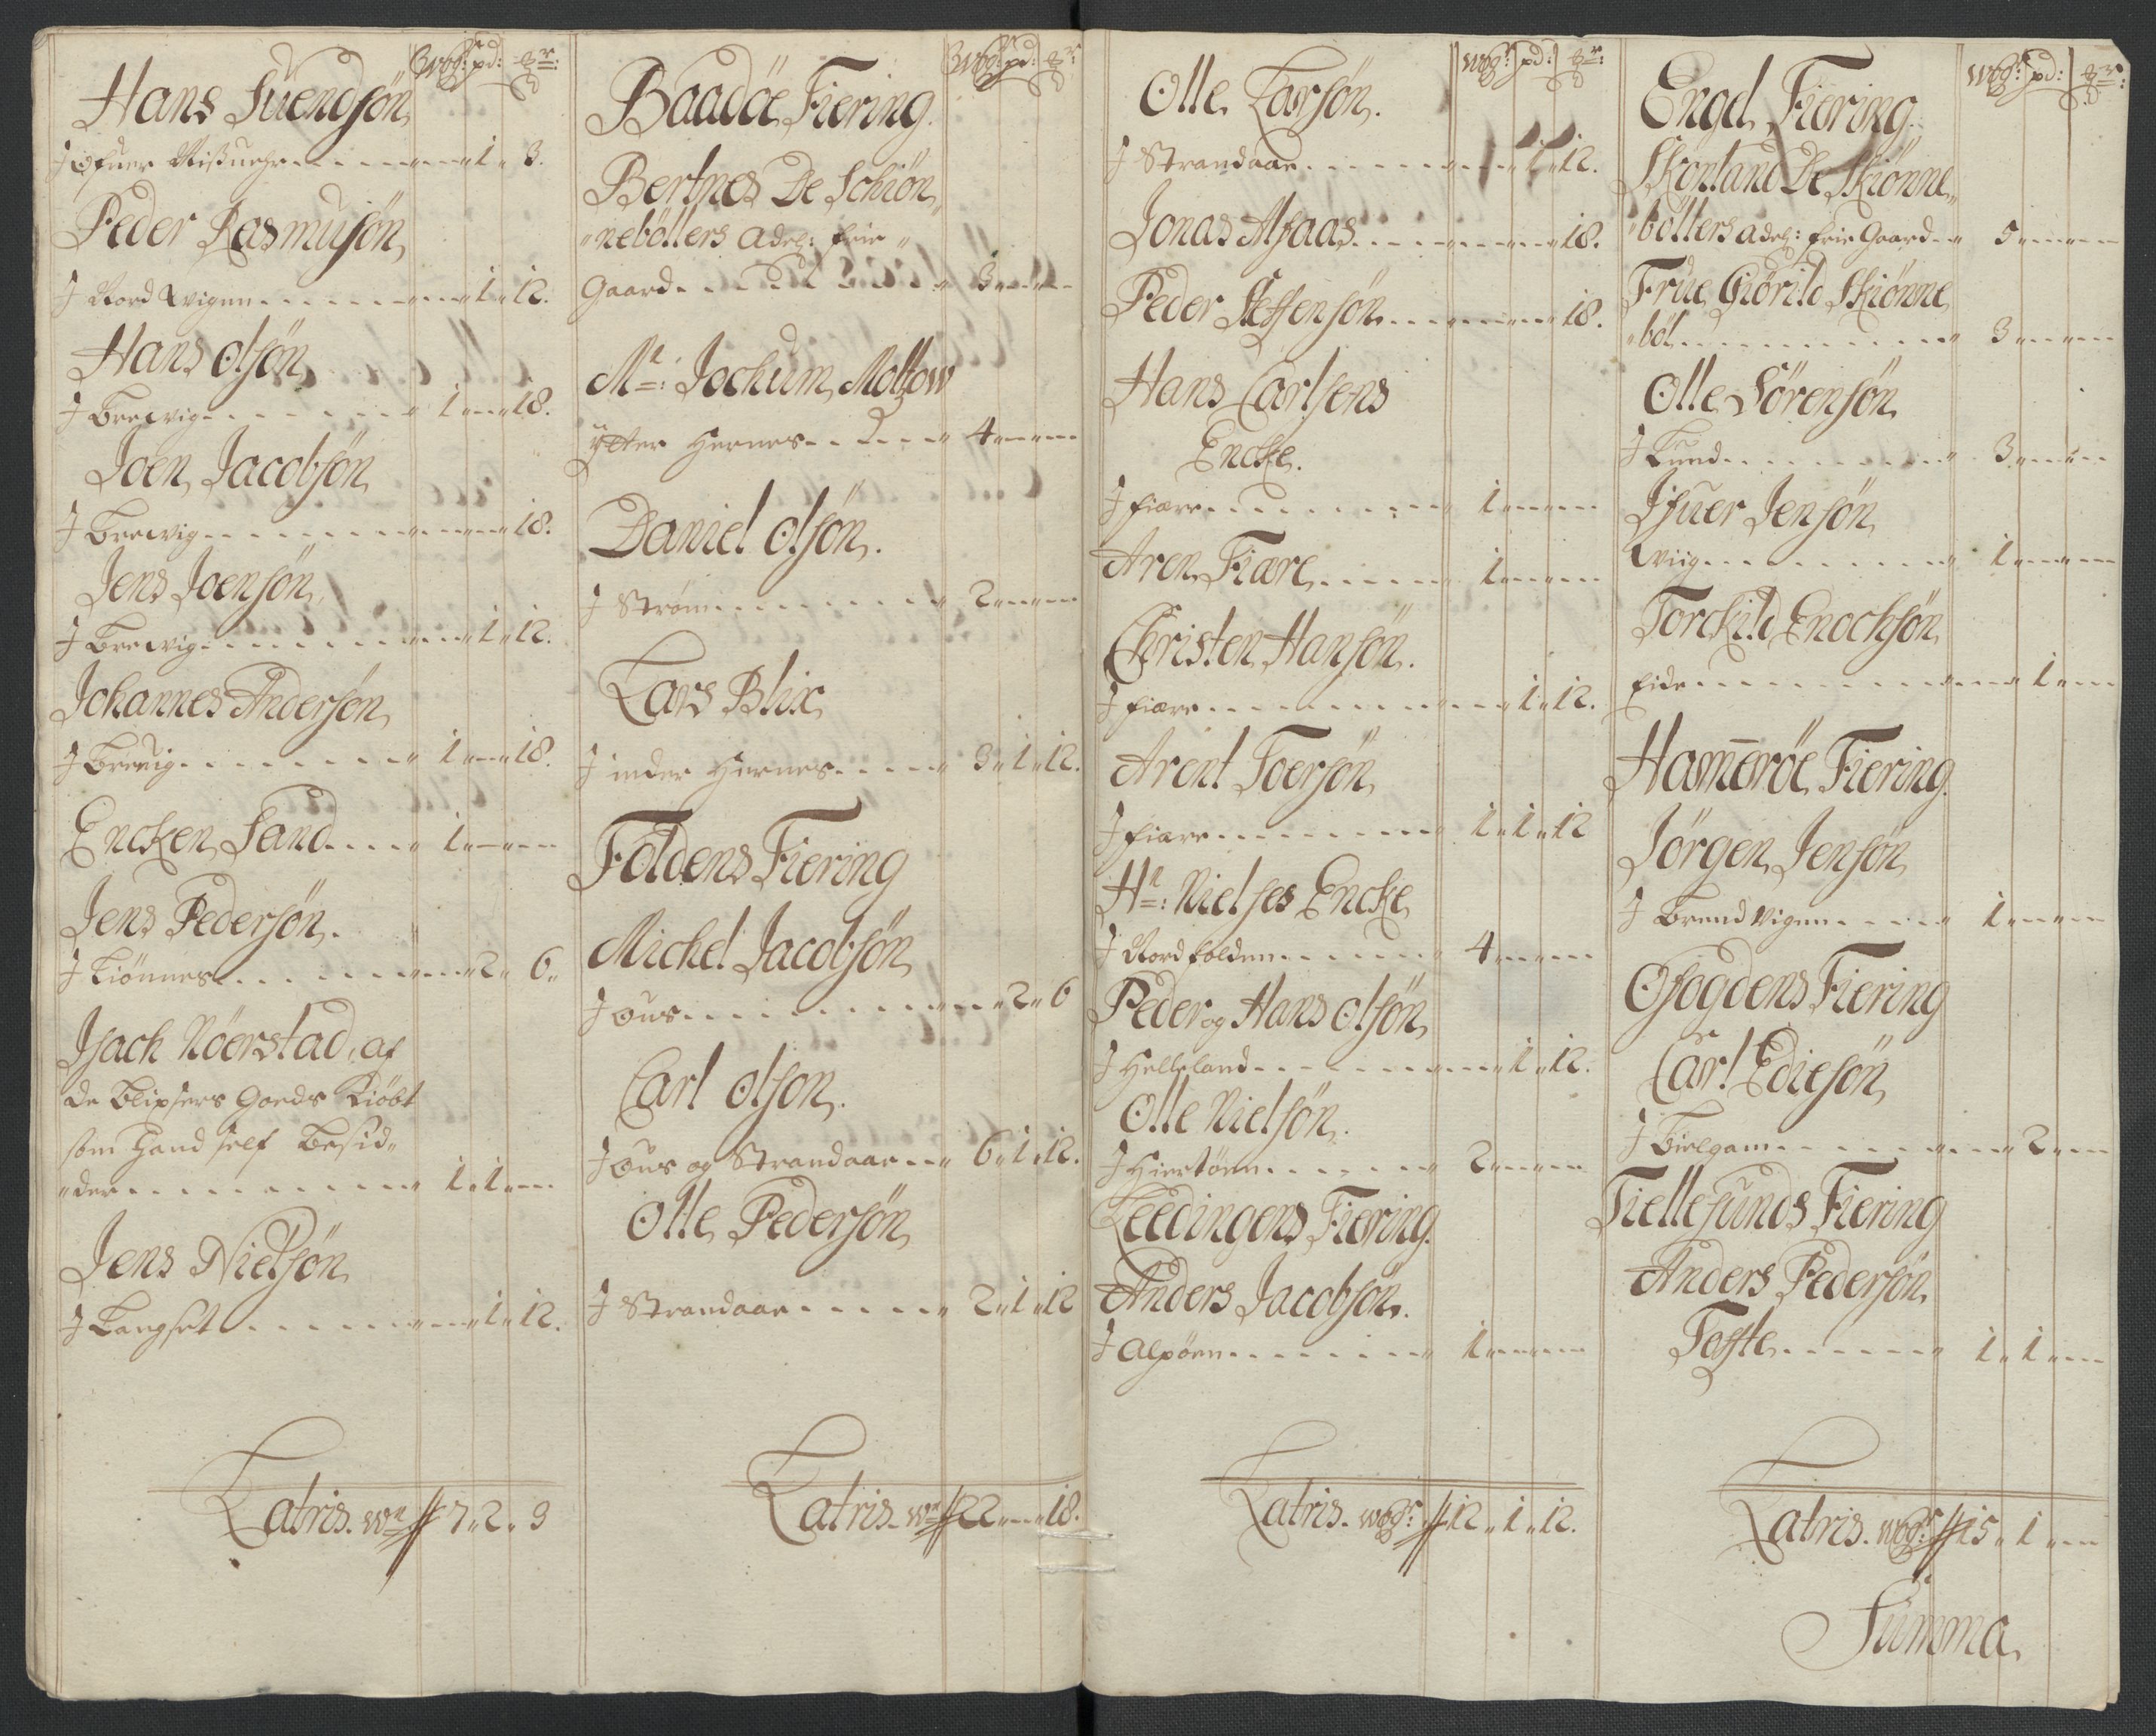 Wog: pd: Mr:
Hans Suendsøn
J Øfuer Misuehr - - - - 1 " 3.
Peder Rasmusøn
J Nord Wigen - - - - 1 " 12.
Hans Olsøn
J Brewig - - - - 1 " - " 18.
Joen Jacobsøn
J Brewig - - - - 18.
Jens Joensøn
J Brewig - - - - 1 " 12.
Johannes Andersøn
J Brewig - - - - 1 " - " 18.
Encken Sand - - - - 1 " - " -
Jens Pedersøn.
J Kiønnes - - - - 2 " 6 "
Jsach Nöerstad, af
de Blixsers Goeds Kiöbt
som hand self besid"
"der - - - - 1 " 1 " -
Jens Nielsøn
J Langset - - - - 1 " 12.
Latris. Wr 7 " 2 " 9
Wog: pd: Mr:
Baadöe Fiering.
Bertnes De Schiön"
"nebøllers adel: frie "
Gaard - - - - 3 " - " -
Mr: Jochum Moltzow
ÿtter Hernes - - - - 4 " - " -
Daniel Olsøn.
J Strøm - - - - 2 " - " -
Lars Blix
J inder Hernes - - - - 3 " 1 " 12.
Foldens Fiering
Michel Jacobsøn
J Øus - - - - 2 " 6
Carl Olsøn.
J Øus og Strandaae - - " 6 " 1 " 12.
Olle Pedersøn
J Strandaae - - - - 2 " 1 " 12
Latris. Wr 22 " - " 18.
Wog: pd: Mr:
Olle Larsøn.
J Strandaae - - - - 1 " 12.
Jonas Alsaas - - - - 18.
Peder Steffensøn - - - - 18.
Hans Carlsens
Encke.
J fiære - - - - 1 " - " -
Aren Fiære - - - - 1 " - " -
Christen Hansøn.
J fiære - - - - 1 " 12.
Arent Toersøn
J fiære - - - - 1 " 1 " 12
Hr: Nielses Encke
J Nordfolden - - - - 4 " - " -
Peder og Hans Olsøn
J Helleland - - - - 1 " 12.
Olle Nielsøn.
J Hiertøen - - - - 2 " - " -
Leedingens Fiering.
Anders Jacobsøn.
J Alpøen - - - - 1 " - " -
Latris. Wog: 12 " 1 " 12.
Wog: pd: Mr:
Engel. Fiering.
Skonland De Skiønne"
"bøllers adel: frie Gaard - " 5 " - " -
Frue Giørild Skiønne
"böl - - - - 3 " - " -
Olle Sörensøn
J Lund - - - - 3 " - " -
Jfuer Jensøn
Wiig - - - - 1 " - " -
Torckild Enochsøn
Eide - - - - 1 " -
Hamerøe Fiering.
Jörgen Jensøn
J Brendvigen - - - - 1 " - " -
Ofogdens Fiering
Carl Ediesøn
J Kielgam - - - - 2 " -
Tiellesunds Fiering
Anders Pedersøn
Tofte - - - - 1 " 1 " -
Latris. Wog: 15 " 1 " -
Summa